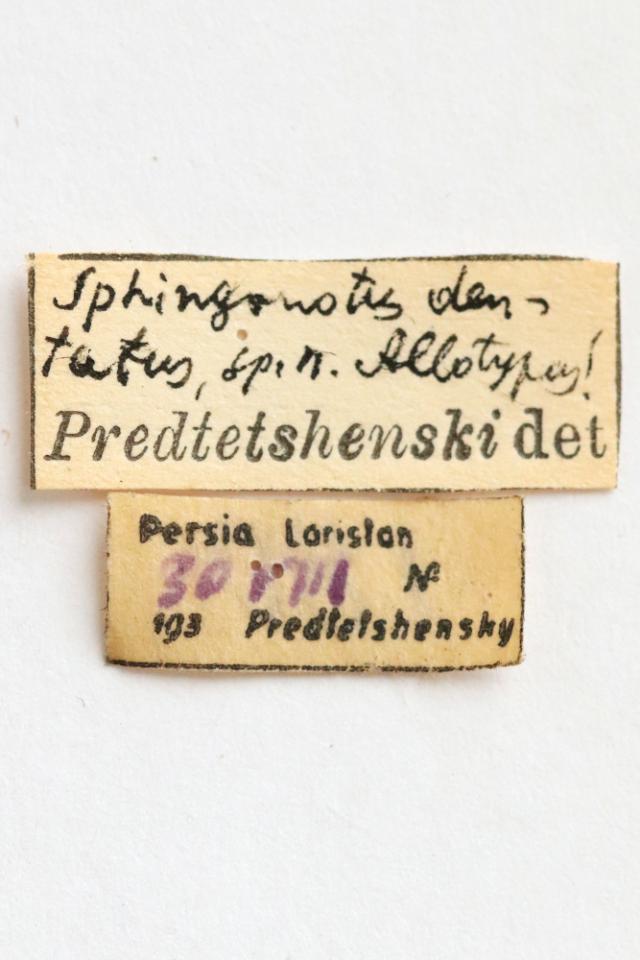 Sphingonotus den-
tatus, sp. n. Allotypus!
Predtetshenski det
Persia Loristan
30 VIII №
193 Predtetshensky